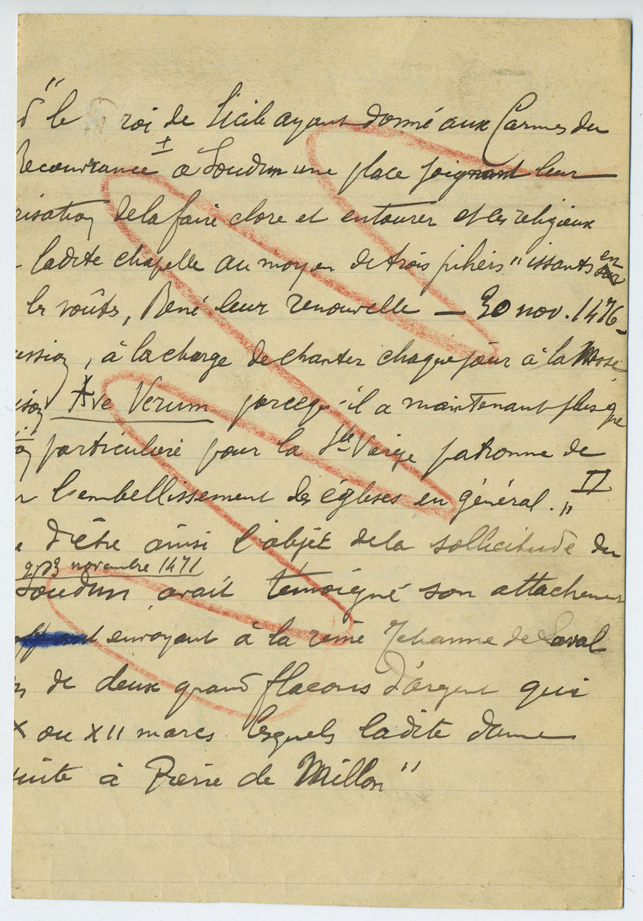 " le roi de Sicile ayant donné aux Carmes du
Recouvrance + a Loudun une place joignant leur
risation de la faire clore et entourer et les religieux
ladite chapelle au moyen de trois piliers " issants en
les voûtes, René leur renouvelle — 30 nov. 1476 -
ession, à la charge de chanter chaque jour à la Messe
Ave Verum parcequ'il a maintenant plus que
particulière pour la Ste Vierge patronne de
l'embellissement des églises en général. " II
d'être ainsi l'objet de la sollicitude du
novembre 1471
Loudun avait témoigné son attachement
envoyant à la reine Jehanne de Laval
de deux grand flacons d'argent qui
X ou XII marcs lesquels ladite dame
suite à Pierre de Millon "